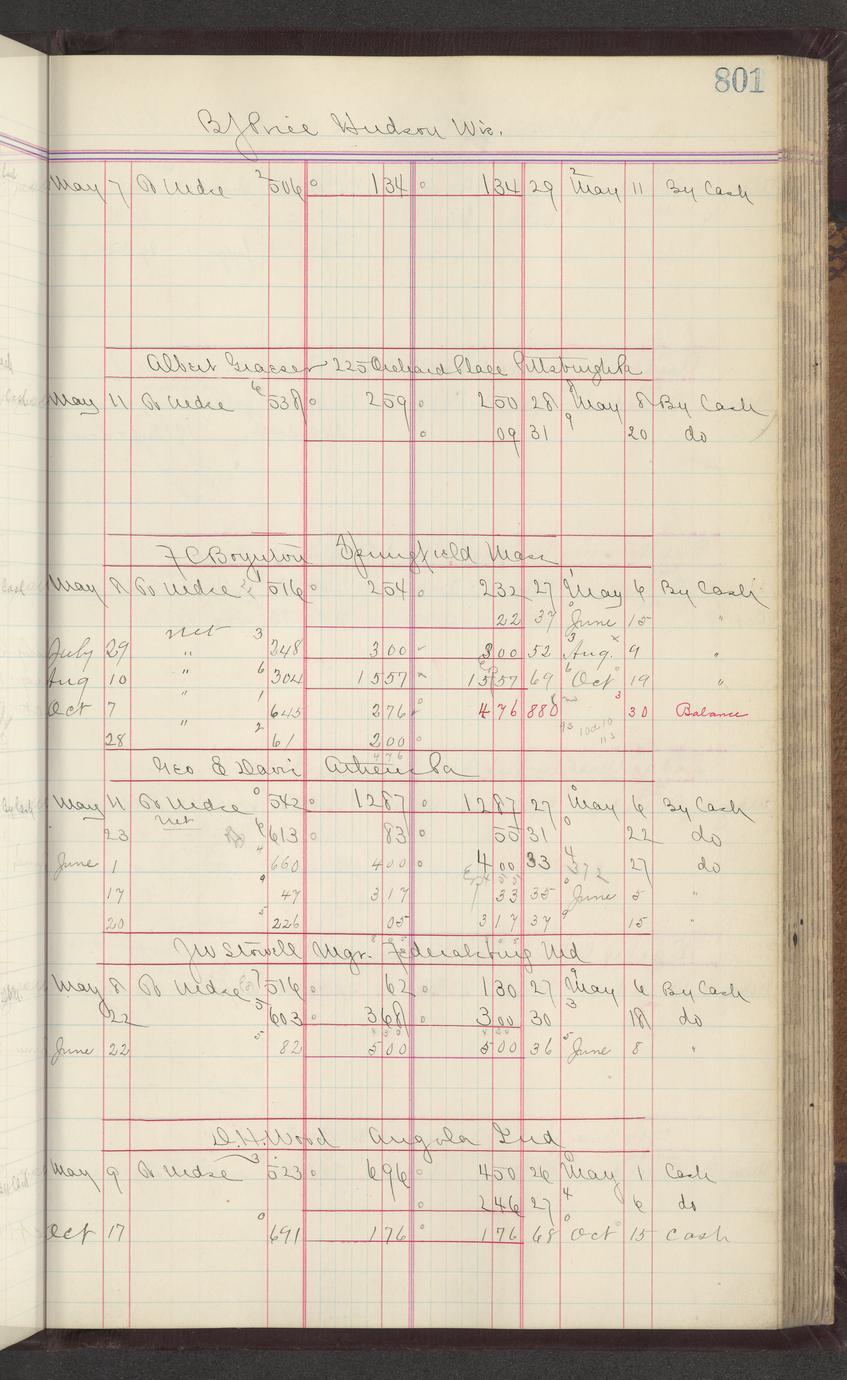 801
B J Price Hudson Wis.
May 7 To Mdse 2 506 134 134 29 2 May 11 By Cash
Albert Graeser 225 Orchard Place Pittsburgh Pa
May 11 To Mdse 6 538 259 250 28 8 May 8 By Cash
09 31 9 20 do
F C Boynton Springfield Mass
May 8 To Mdse 1 516 254 232 27 1 May 6 By Cash
22 37 0 June 15 "
July 29 net " 3 248 300 300 52 3 Aug. 9 "
Aug 10 " 6 304 1557 1557 69 6 Oct 19 "
Oct 7 " 1 645 276 476 880 3 30 Balance
28 " 2 61 200
476
Geo E Davis Athens Pa
May 11 To Mdse 0 542 1287 1287 27 0 May 6 By Cash
23 net 6 613 83 55 31 0 22 do
June 1 4 660 400 400 33 4 372 27 do
17 9 47 317 33 35 0 June 5 "
20 5 226 05 317 37 9 15 "
J W Stowell Mgr. Federalsburg Md
May 8 To Mdse 7 516 62 130 27 9 May 6 By Cash
22 5 603 368 300 30 3 18 do
June 22 5 82 500 500 36 5 June 8 "
D. H. Wood Angola Ind
May 9 To Mdse 3 523 696 450 26 0 May 1 Cash
246 27 4 6 do
Oct 17 0 691 176 176 68 0 Oct 15 Cash